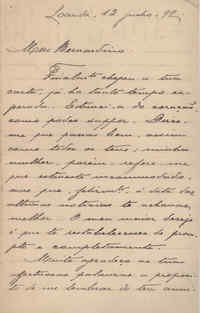 Loanda, 12 junho, 92
Meu Bernardino
Finalmte chegou a tua
carta, já ha tanto tempo es-
perada. Estimei-a de coração
como podes suppor. Dizes-
me que passas bem, assim
como todos os teus; minha
mulher, porém, refere-me
que estiveste incommodado,
mas que, felizmte, á data das
ultimas noticias te achavas
melhor. O meu maior desejo
é que te restabelecesses de prom-
pto e completamente.
Muito agradeço as tuas
affectuosas palavras a proposi-
to de me lembrar do teu anni-